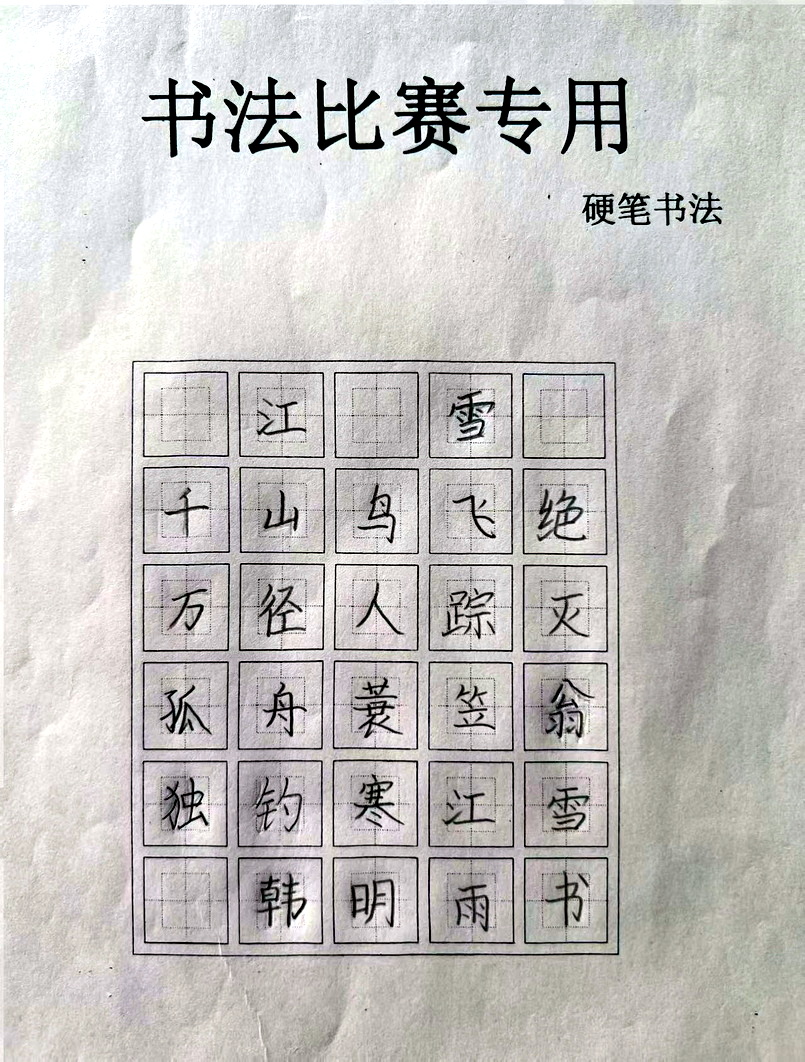 书法比赛专用
硬笔书法
江雪
千山鸟飞绝
万径人踪灭
孤舟蓑笠翁
独钓寒江雪
韩明雨书